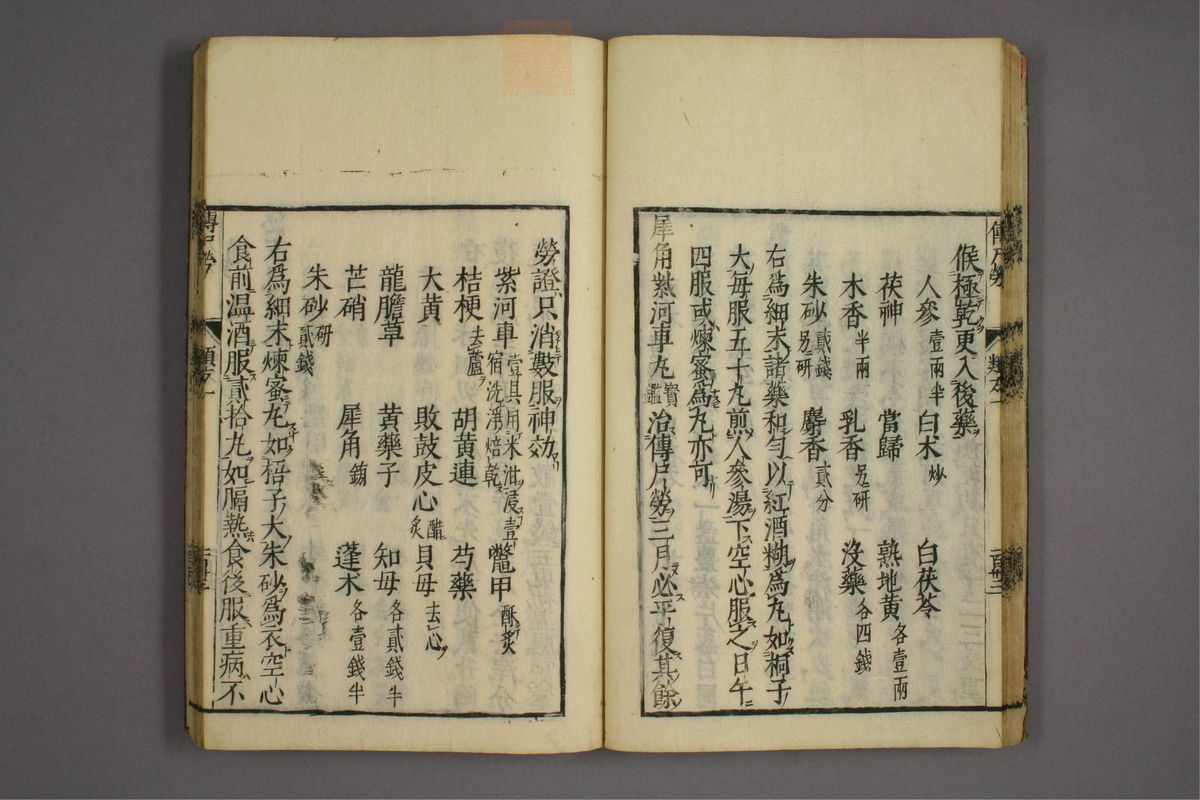 候極乾更入後藥
人參壹兩半 白朮炒 白茯苓
茯神 當歸 熟地黃各壹兩
木香半兩 乳香另研 沒藥各四錢
朱砂貳錢另研 麝香貳分
右為細末諸藥和勻以紅酒糊為丸如桐子
大每服五十丸煎人參湯下空心服之日午
四服或煉蜜為丸亦可
犀角紫河車丸寶鑑治傳尸勞三月必平復其餘
勞證只消數服神効
紫河車壹具用米泔浸壹宿洗淨焙乾 鱉甲酥炙
桔梗去蘆 胡黃連 芍藥
大黃 敗鼓皮心醋炙 貝母去心
龍膽草 黃藥子 知母各貳錢半
芒硝 犀角鎊 蓬朮各壹錢半
朱砂研貳錢
右為細末煉蜜丸如梧子大朱砂為衣空心
食前温酒服貳拾丸如膈熱食後服重病不
傳尸勞
類方